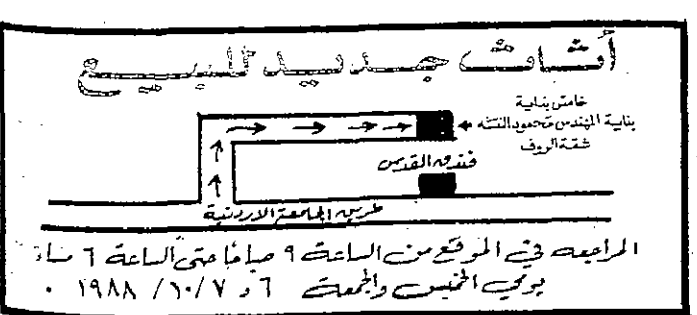 أثاث جديد للبيع
خامس بناية
بناية المهندس محمود
شقة الروف
فندق القدس
طريق الجامعة الاردنية
المراجعه في الموقع من الساعة ٩ صباحًا حتى الساعة ٦ مساءً
يومي الخميس والجمعة ٦ و ٧/١٠/١٩٨٨ .